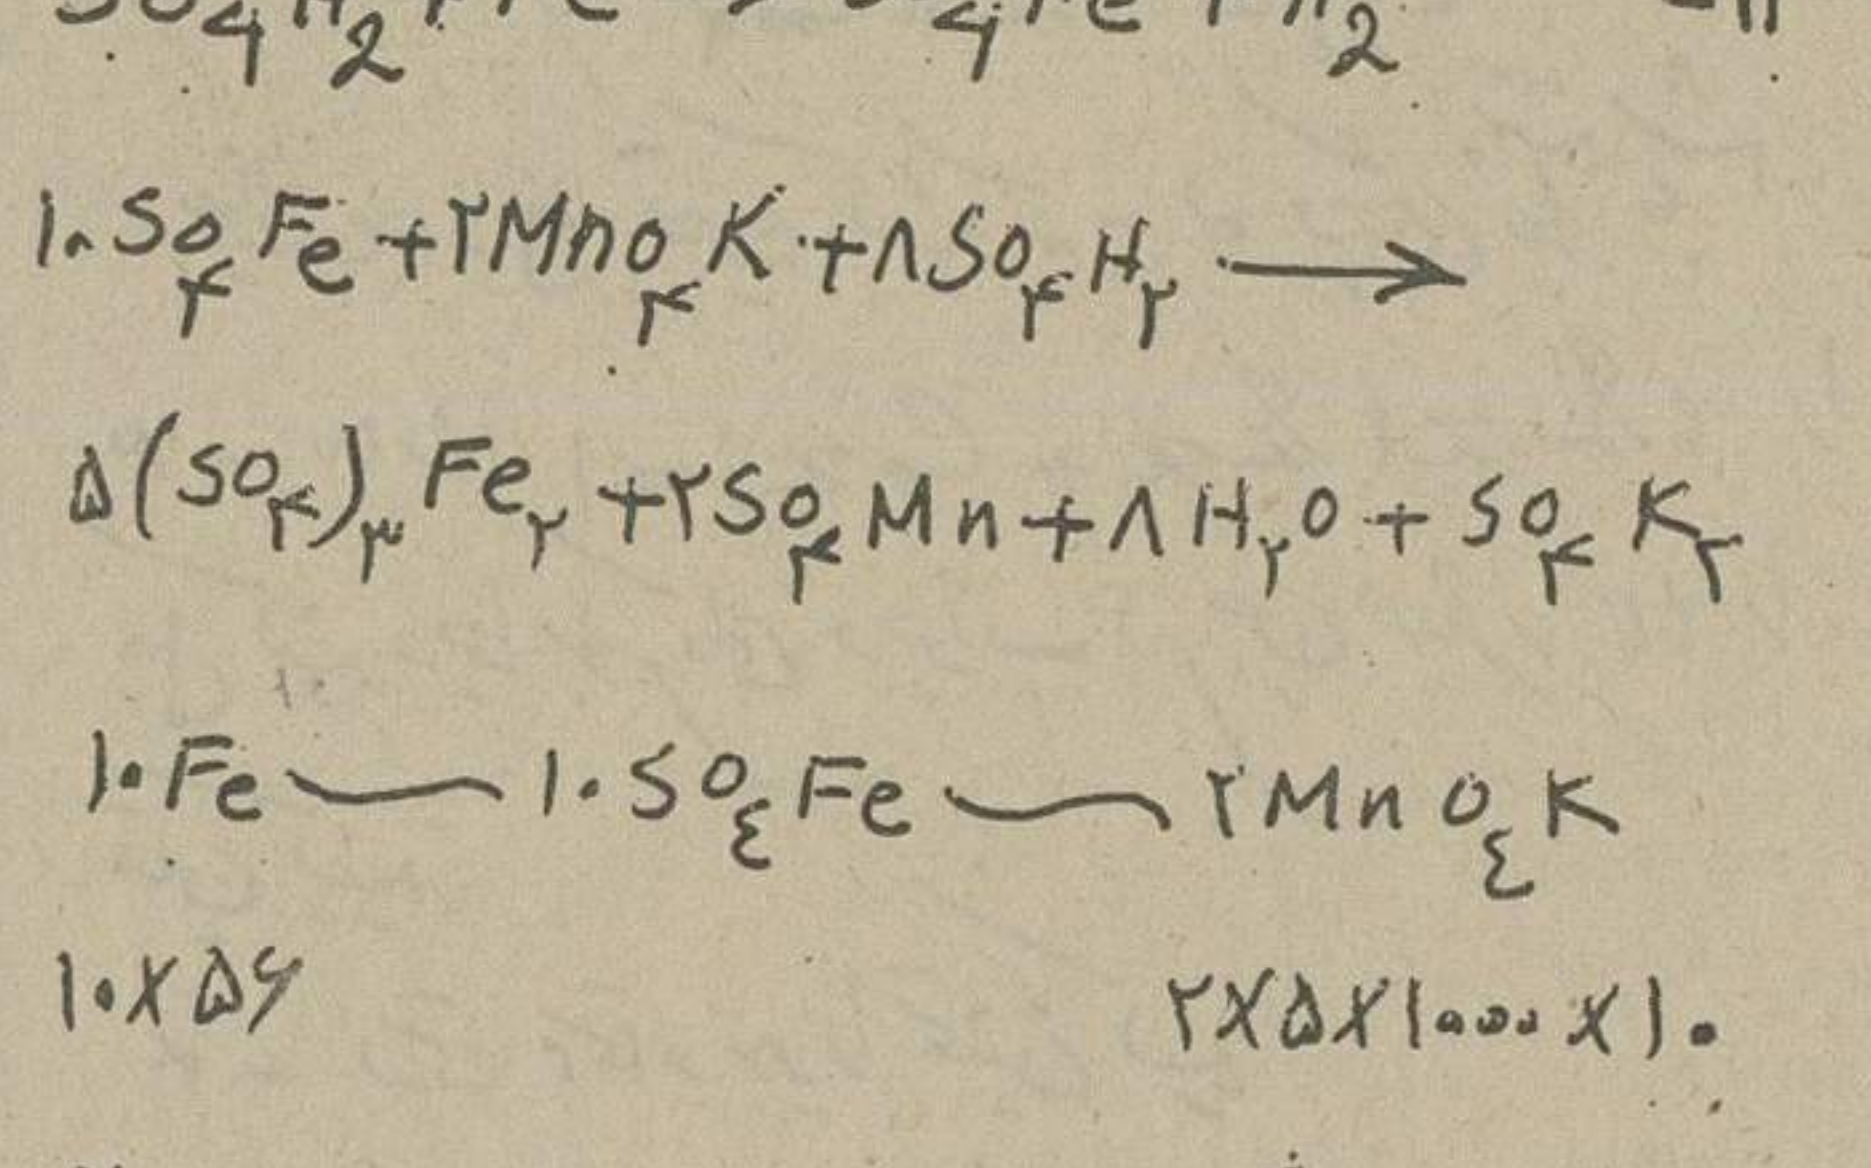 SO4H2 + Fe → SO4Fe + H2
۱۰SO۴Fe + ۲MnO۴K + ۸SO۴H۲ →
۵(SO۴)۳Fe۲ + ۲SO۴Mn + ۸H۲O + SO۴K۲
۱۰Fe — ۱۰SO٤Fe — ۲MnO٤K
۱۰×۵۶ ۲×۵×۱۰۰۰×۱۰